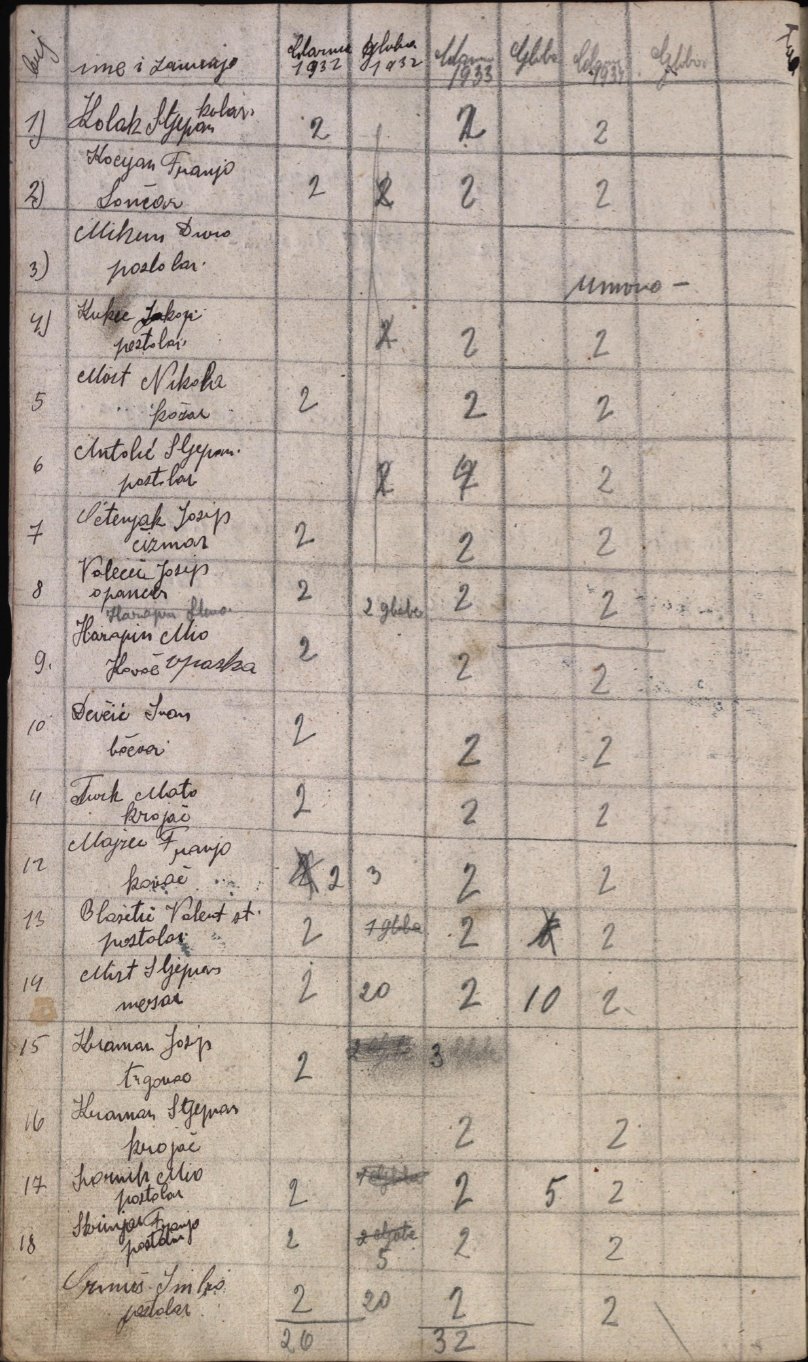 broj ime i zanimanje Članar. 1932 Globa 1932 Članar. 1933 Globa Članar. 1934 Globa
1) Kolak Stjepan kolar. 2 2 2
2) Kocijan Franjo 2 2 2 2
Lončar
3) Mikem Đuro
postolar. umro -
4) Kukec Jakop 2 2 2
postolar.
5 Most Nikola 2 2 2
kožar
6 Antolić Stjepan. 2 2 2
postolar
7 Josip 2 2 2
čizmar
8 Valecić Josip 2 2 globe 2 2
opančar
Harapin
9. Harapin Mio 2 2 2
Kovač Vpaska
10 Devčić Ivan 2 2 2
bačvar
11 Turk Mato 2 2 2
krojač
12 Majzec Franjo 2 3 2 2
kovač
13 Blasetić Valent st. 2 1 globa 2 2
postolar
14 Most Stjepan 2 20 2 10 2
mesar
15 Kramar Josip 2 3
trgovac
16 Kramar Stjepan 2 2
krojač
17 Mio 2 2 5 2
postolar
18 Škrinjar Franjo 2 2 globe 2 2
postolar 5
2 20 2 2
postolar
26 32